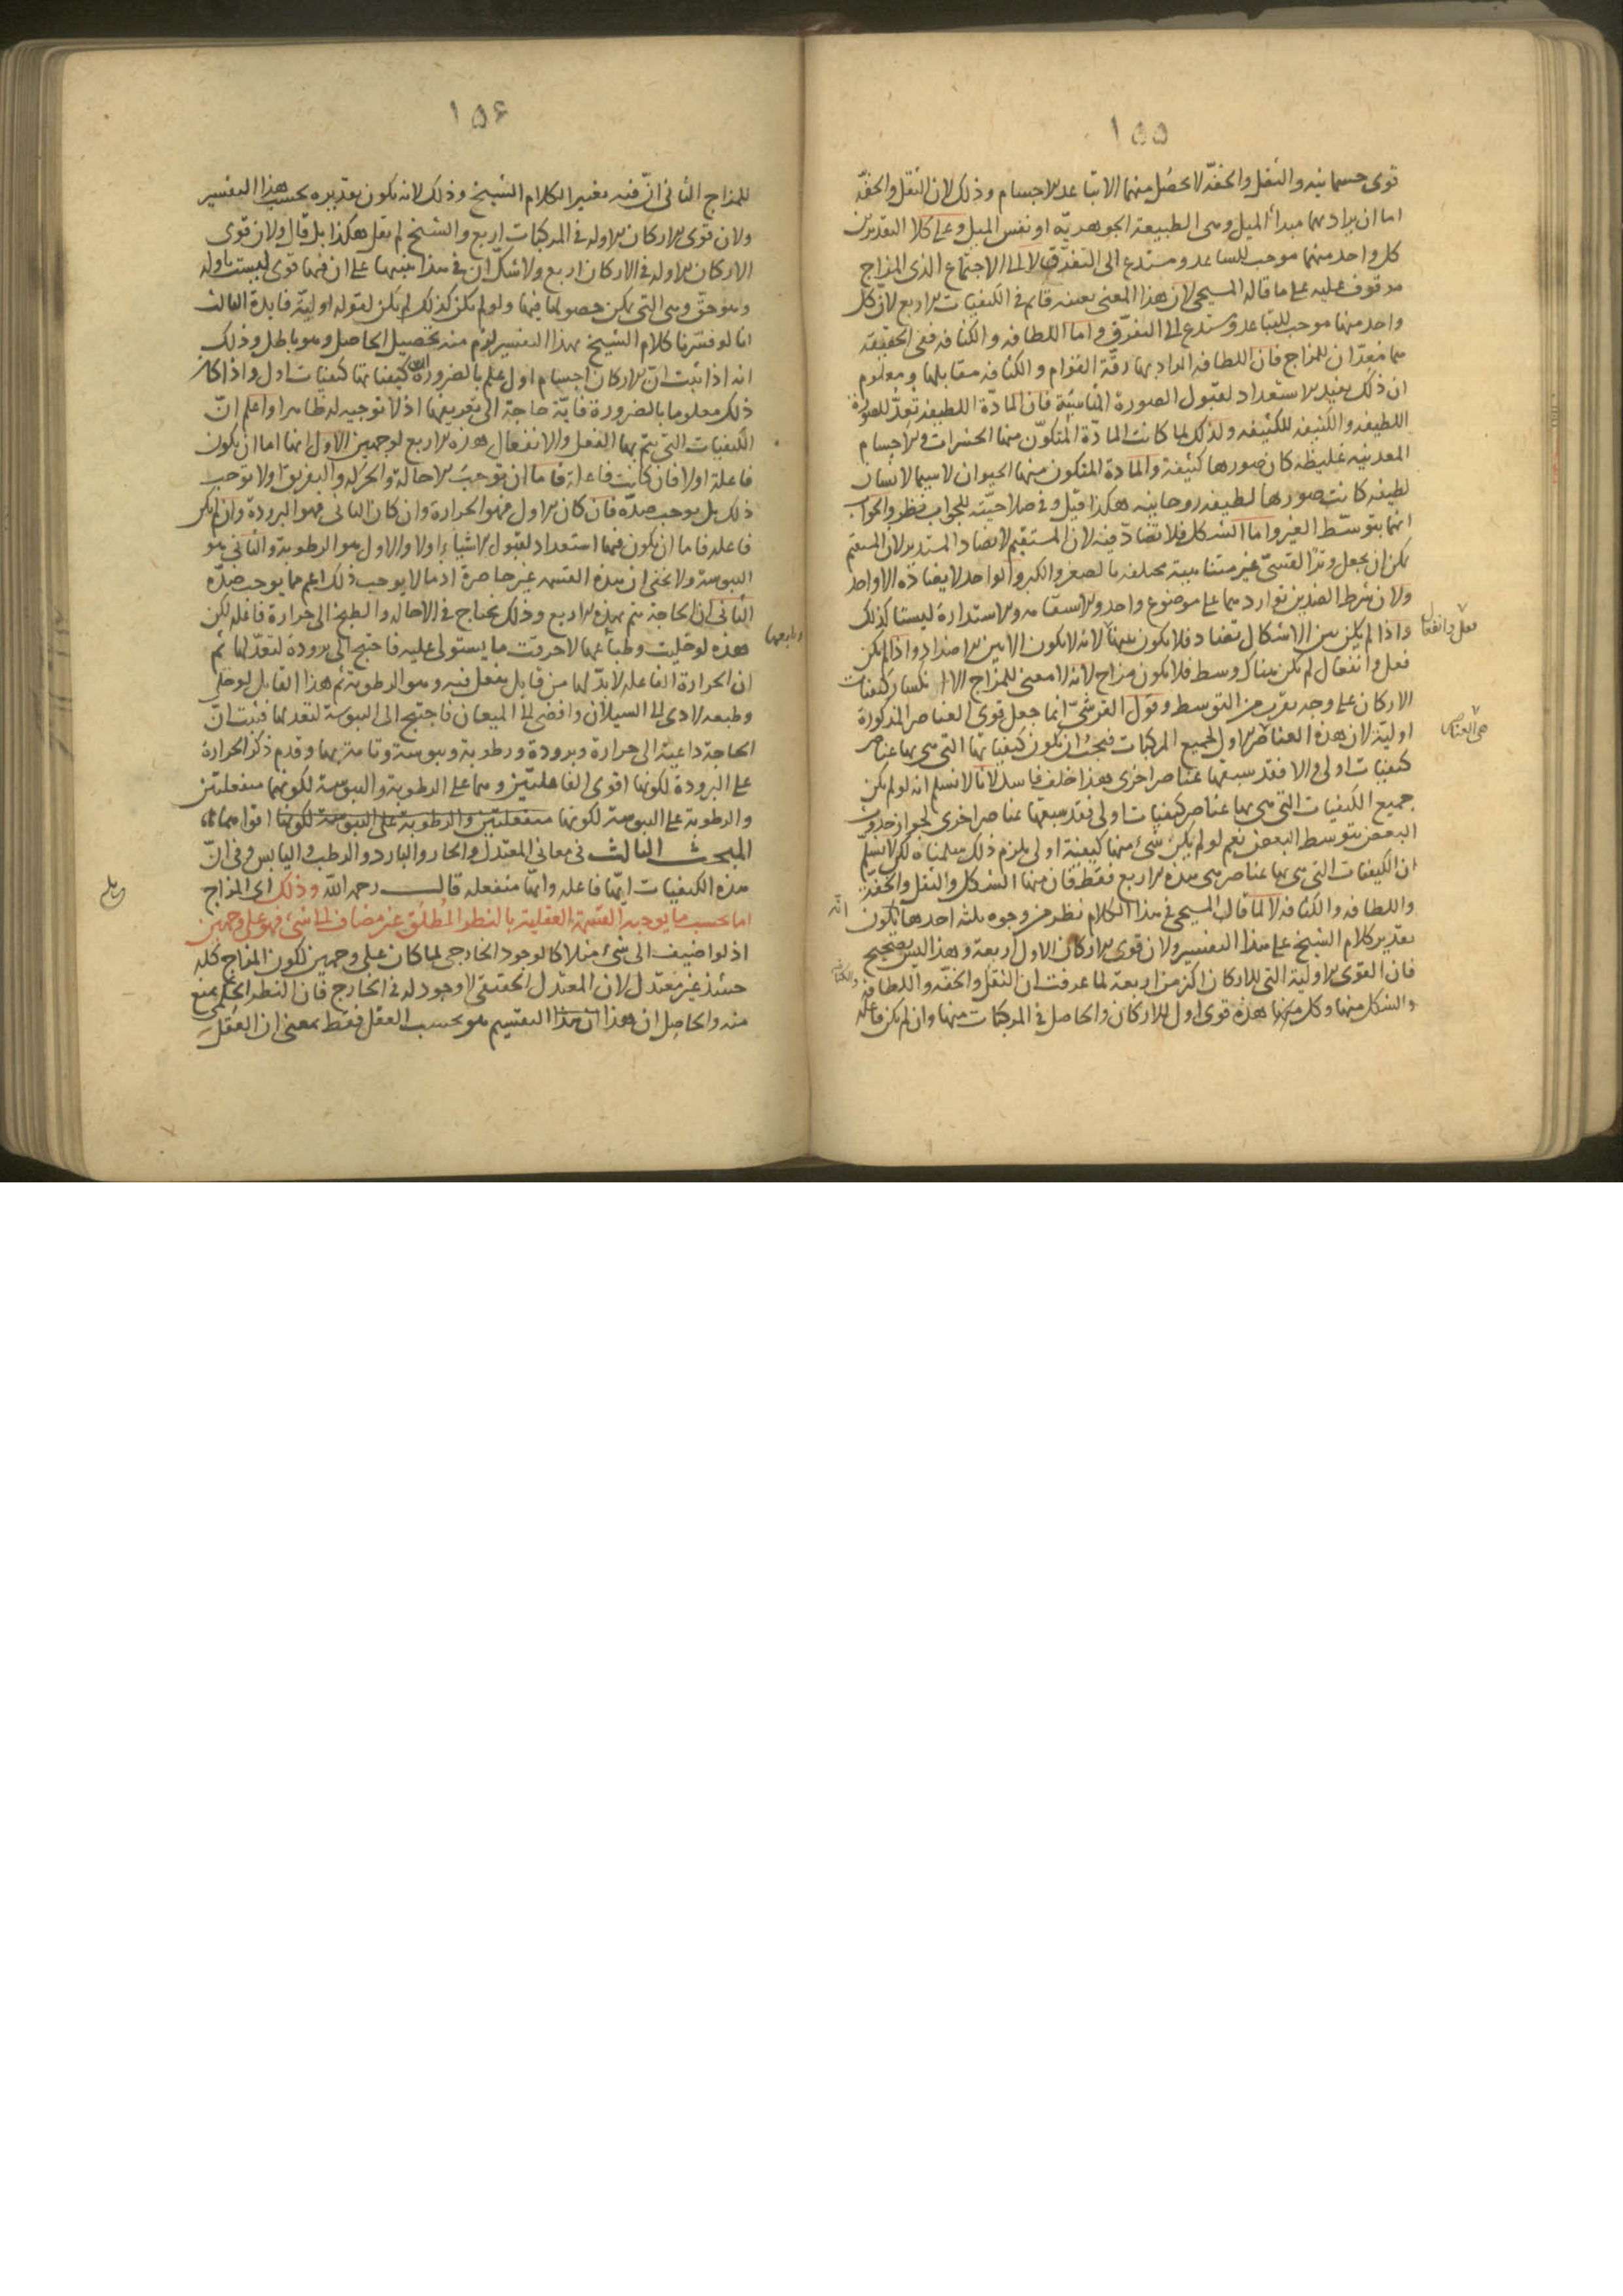 ١٥٥
قوى جسمانيه والثقل والخفّه لا تحصل منهما الا تباعد الاجسام وذلك لان الثقل والخفّه
اما ان يراد بهما مبدأ الميل وهى الطبيعة الجوهريّه او نفس الميل وعلى كلا التقديرين
كل واحد منهما موجب للتباعد ومستدع الى التفرّق لا الى الاجتماع الذى المزاج
موقوف عليه على ما قاله المسيحى لان هذا المعنى بعينه قايم فى الكيفيات الاربع لان كل
واحد منها موجب للتباعد ومستدع الى التفرّق واما اللطافه والكثافه ففى الحقيقة
هما معدّان للمزاج فان اللطافه المراد بها رقّة القوام والكثافه مقابلها ومعلوم
ان ذلك يفيد الاستعداد لقبول الصورة المناسبة فان المادّة اللطيفه تعدّ للصورة
اللطيفه والكثيفه للكثيفه ولذلك لما كانت المادّة المتكوّن منها الحشرات والاجسام
المعدنيه غليظه كان صورها كثيفة والمادة المتكون منها الحيوان لا سيما الانسان
لطيفه كانت صورها لطيفه روحانيه هكذا قيل وفى صلاحيّته للجواب نظر والجواب
انهما بتوسّط الغير واما الشكل فلا تضادّ فيه لان المستقيم لا يضاد المستدير لان المستقيم
يمكن ان يجعل وترًا لقسىّ غير متناهية مختلفه بالصغر والكبر والواحد لا يضادّه الا واحد
ولان شرط الضدين تواردهما على موضوع واحد والاستقامه والاستدارة ليستا كذلك
واذا لم يكن بين الاشكال تضاد فلا يكون بينهما لانه لا يكون الا بين الاضداد واذا لم يكن
فعل وانفعال
فعل وانفعال لم يكن هناك وسط فلا يكون مزاج لانه لا معنى للمزاج الا انكسار كيفيات
الاركان على وجه يقرب من التوسط وقول القرشىّ انما جعل قوى العناصر المذكورة
اوليّة لان هذه العناصر الاول لجميع المركبات فيجب ان تكون كيفياتها التى هى بها عناصر
هى العناصر
كيفيات اولى والا فقد سبقتها عناصر اخرى هذا خلف فاسد لانا لا نسلم انه لو لم يكن
جميع الكيفيات التى هى بها عناصر كيفيات اولى فقد سبقتها عناصر اخرى لجواز حدوث
البعض بتوسط البعض نعم لو لم يكن شئ منها كيفية اولى يلزم ذلك سلمناه لكن لا نسلّم
ان الكيفيات التى هى بها عناصر هى هذه الاربع فقط فان منها الشكل والثقل والخفّة
واللطافه والكثافه لا لما قال المسيحى فى هذا الكلام نظر من وجوه ثلثه احدها انه يكون
تقدير كلام الشيخ على هذا التفسير ولان قوى الاركان الاول اربعة وهذا ليس بصحيح
فان القوى الاولية التى للاركان اكثر من اربعة لما عرفت ان الثقل والخفّه واللطافه
والكثافه
والشكل منها وكل منها هذه قوى اول للاركان والحاصل فى المركبات منها وان لم يكن فاعله
١٥٦
للمزاج الثانى انّ فيه تغيير الكلام الشيخ وذلك لانه يكون تقديره بحسب هذا التفسير
ولان قوى الاركان الاوله فى المركبات اربع والشيخ لم يقل هكذا بل قال ولان قوى
الاركان الاوله فى الاركان اربع ولا شكّ ان فى هذا تنبيها على ان فيها قوى ليست باوله
وهو حقّ وهى التى يمكن حصولها فيها ولو لم يكن كذلك لم يكن لقوله اوليّة فايدة الثالث
انا لو فسّرنا كلام الشيخ بهذا التفسير لزم منه تحصيل الحاصل وهو باطل وذلك
انه اذا ثبت انّ الاركان اجسام اول علم بالضرورة ان كيفياتها كيفيات اول واذا كان
ذلك معلوما بالضرورة فايّة حاجة الى تعريفها اذ لا توجيه له ظاهرا واعلم انّ
الكيفيات التى يتم بها الفعل والانفعال هذه الاربع لوجهين الاول انها اما ان يكون
فاعلة اولا فان كانت فاعلة فاما ان توجب الاحالة والحركه والتفريق اولا توجب
ذلك بل يوجب ضدّه فان كان الاول فهو الحرارة وان كان الثانى فهو البرودة وان لم يكن
فاعله فاما ان يكون فيها استعداد لقبول الاشياء اولا والاول هو الرطوبة والثانى هو
اليبوسة ولا يخفى ان هذه القسمه غير حاصرة اذ ما لا يوجب ذلك اعم مما يوجب ضدّه
الثانى ان الحاجة تتم بهذه الاربع وذلك يحتاج فى الاحاله والطبخ الى حرارة فاعله لكن
هذه لو خليت وطباعها لاحرقت ما يستولى عليه فاحتيج الى برودة لتعدّلها ثم
ان الحرارة الفاعله لابدّ لها من قابل يفعل فيه وهو الرطوبة ثم هذا القابل لو خلى
وطبعه لادى الى السيلان وافضى الى الميعان فاحتيج الى اليبوسة لتعدلها فثبت انّ
الحاجة داعية الى حرارة وبرودة ورطوبة ويبوسة وتامة بها وقدم ذكر الحرارة
على البرودة لكونها اقوى الفاعلتين وهما على الرطوبة واليبوسة لكونهما منفعلتين
والرطوبة على اليبوسة لكونها منفعلتين والرطوبة على اليبوسة لكونها اقواهما
المبحث الثالث فى معانى المعتدل والحار والبارد والرطب واليابس وفى انّ
هذه الكيفيات ايّها فاعله وايّها منفعله قال رحمه الله وذلك اى المزاج
اما بحسب ما يوجبه القسمة العقلية بالنظر المطلق غير مضاف الى شىء فهو على وجهين
اذ لو اضيف الى شئ مثلا كالوجود الخارجى لما كان على وجهين لكون المزاج كله
حينئذ غير معتدل لان المعتدل الحقيقى لا وجود له فى الخارج فان النظر الحكمى يمنع
منه والحاصل ان هذا ان هذا التقسيم هو بحسب العقل فقط بمعنى ان العقل